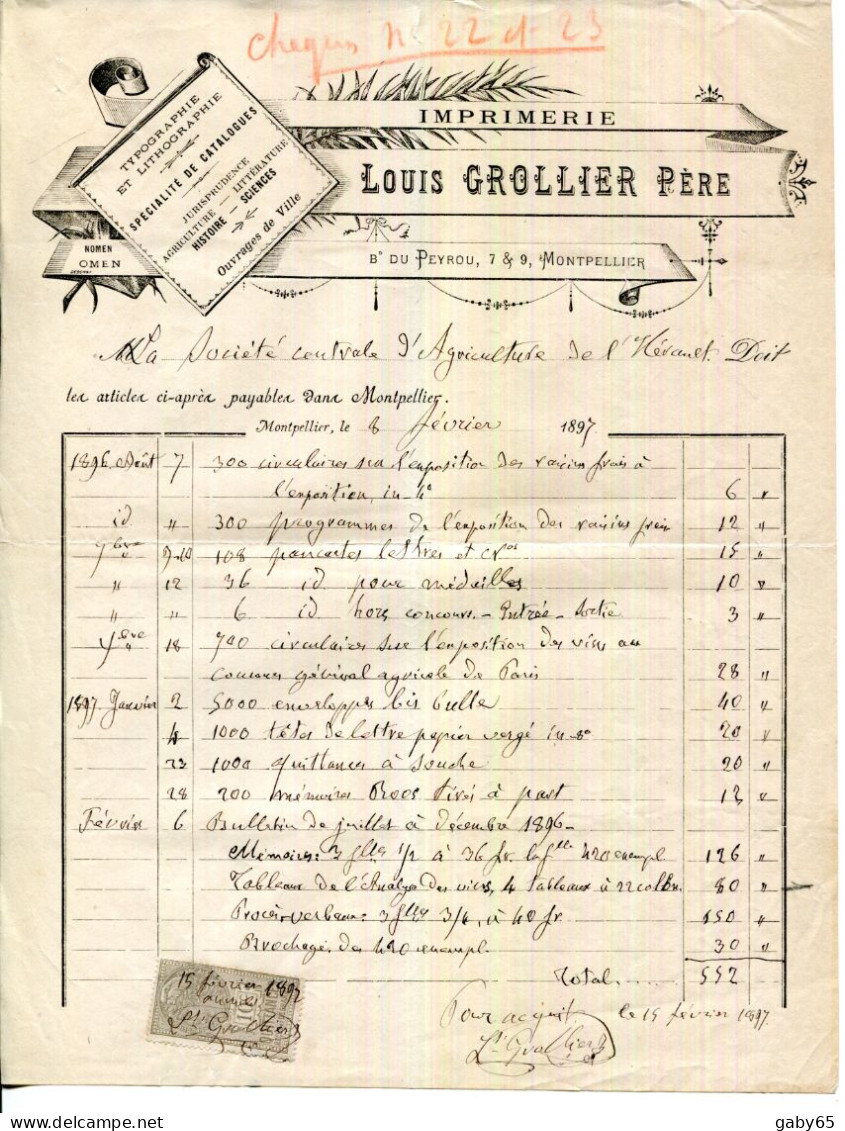 Cheques nos 22 et 23
TYPOGRAPHIE
ET LITHOGRAPHIE
SPÉCIALITÉ DE CATALOGUES
JURISPRUDENCE
AGRICULTURE — LITTÉRATURE
HISTOIRE — SCIENCES
Ouvrages de Ville
NOMEN
OMEN
IMPRIMERIE
LOUIS GROLLIER PÈRE
Bd DU PEYROU, 7 & 9, MONTPELLIER
M La Société centrale d'Agriculture de l'Hérault Doit
les articles ci-après payables dans Montpellier.
Montpellier, le 8 février 1897
1896 Août 7 300 circulaires sur l'exposition des raisins frais à
l'exposition, in-4o 6 "
id " 300 programmes de l'exposition des raisins frais 12 "
9bre 9-10 108 pancartes lettres et 15 "
" 12 36 id pour médailles 10 "
" " 6 id hors concours - Entrée - Sortie 3 "
18 700 circulaires sur l'exposition des vins au
concours général agricole de Paris 28 "
1897 Janvier 2 5000 enveloppes bis bulle 40 "
4 1000 têtes de lettre papier vergé in-8o 20 "
23 1000 quittances à souche 20 "
28 200 mémoires Roos tirés à part 12 "
Février 6 Bulletin de juillet à décembre 1896 -
Mémoires: 3 flles 1/2 à 36 fr. la flle 420 exempl 126 "
Tableaux de l'Analyse des vins, 4 tableaux à 22 col 80 "
Procès-verbaux: 3 flles 3/4, à 40 fr. 150 "
Brochages des 420 exempl. 30 "
Total ..... 552
15 février 1897
Ls Grollier
Pour acquit le 15 février 1897.
Ls Grollier
gaby65